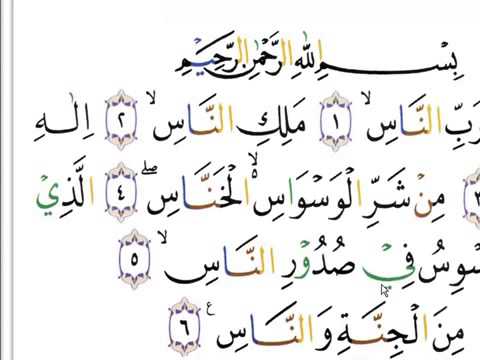 بِسْمِ اللّٰهِ الرَّحْمٰنِ الرَّحِيْمِ
رَبِّ النَّاسِ ۙ ١ مَلِكِ النَّاسِ ۙ ٢ اِلٰهِ
٣ مِنْ شَرِّ الْوَسْوَاسِ ەۙ الْخَنَّاسِ ۖ ٤ الَّذِيْ
فِيْ صُدُوْرِ النَّاسِ ۙ ٥
مِنَ الْجِنَّةِ وَالنَّاسِ ࣖ ٦